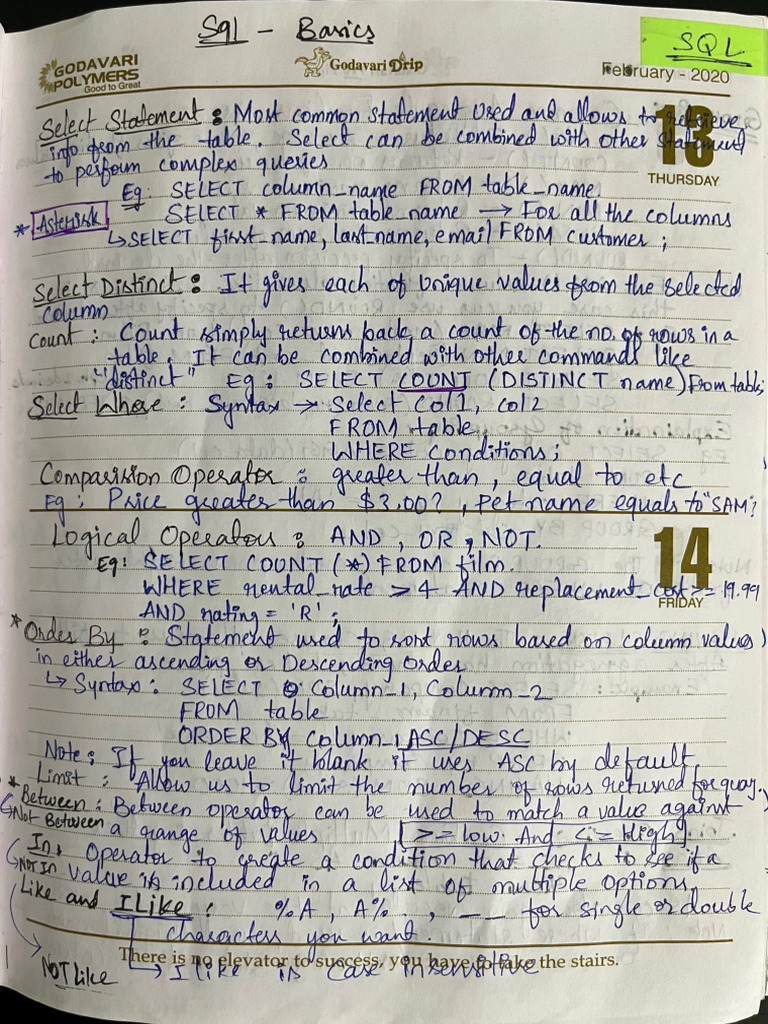 Sql - Basics
SQL
GODAVARI
POLYMERS
Good to Great
Godavari Drip
February - 2020
13
THURSDAY
Select Statement : Most common statement used and allows to retrieve
info from the table. Select can be combined with other statement
to perform complex queries
Eg: SELECT column_name FROM table_name.
* Asterisk SELECT * FROM table_name → For all the columns
↳ SELECT first_name, last_name, email FROM customer ;
Select Distinct : It gives each of unique values from the selected
column
Count : Count simply returns back a count of the no. of rows in a
table. It can be combined with other commands like
"distinct" Eg : SELECT COUNT (DISTINCT name) From table;
Select Where : Syntax → Select Col1, col2
FROM table
WHERE conditions ;
Comparision Operator : greater than, equal to etc
Eg : Price greater than $3.00? , Pet name equals to "SAM"?
14
FRIDAY
Logical Operators : AND, OR, NOT.
Eg: SELECT COUNT (*) FROM film.
WHERE rental_rate > 4 AND replacement_cost >= 19.99
AND rating = 'R' ;
* Order By : Statement used to sort rows based on column values
in either ascending or Descending order
↳ Syntax : SELECT Column_1, Column_2
FROM table
ORDER BY Column_1 ASC/DESC
Note : If you leave it blank it uses ASC by default.
Limit : Allow us to limit the number of rows returned for quay.
* Between : Between operator can be used to match a value against
Not Between a range of values [>= low And <= High]
In, Operator to create a condition that checks to see if a
NOT IN value is included in a list of multiple options,
Like and ILike : %A , A% , _ _ for single or double
characters you want.
There is no elevator to success, you have to take the stairs.
NOT Like → I like is case insensitive